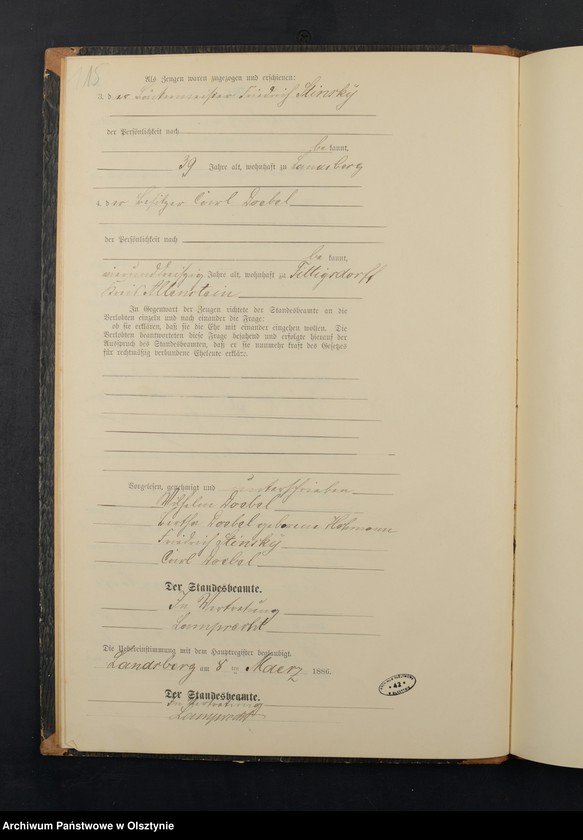 115
Als Zeugen waren zugezogen und erschienen:
3. der Bäckermeister Friedrich Stinsky
der Persönlichkeit nach
be kannt,
39 Jahre alt, wohnhaft zu Landsberg
4. der Besitzer Carl Doebel
der Persönlichkeit nach
be kannt,
vierunddreißig Jahre alt, wohnhaft zu
Kreis Allenstein
In Gegenwart der Zeugen richtete der Standesbeamte an die
Verlobten einzeln und nach einander die Frage:
ob sie erklären, daß sie die Ehe mit einander eingehen wollen. Die
Verlobten beantworteten diese Frage bejahend und erfolgte hierauf der
Ausspruch des Standesbeamten, daß er sie nunmehr kraft des Gesetzes
für rechtmäßig verbundene Eheleute erkläre.
Vorgelesen, genehmigt und unterschrieben
Wilhelm Doebel
Bertha Doebel geborene Hohmann
Friedrich Stinsky
Carl Doebel
Der Standesbeamte.
In Vertretung
Lamprecht
Die Uebereinstimmung mit dem Hauptregister beglaubigt.
Landsberg am 8 ten Maerz 1886.
Der Standesbeamte.
In Vertretung
Lamprecht
42
Archiwum Państwowe w Olsztynie